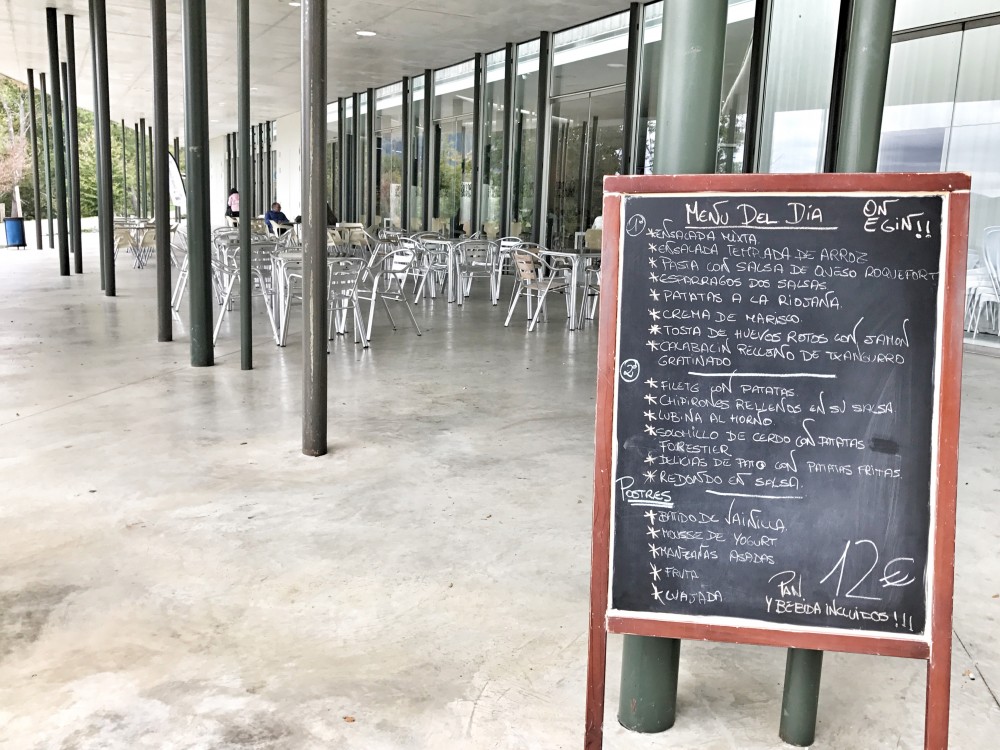 MENU DEL DÍA
ON EGIN!!
1º
*ENSALADA MIXTA.
*ENSALADA TEMPLADA DE ARROZ
*PASTA CON SALSA DE QUESO ROQUEFORT
*ESPARRAGOS DOS SALSAS.
*PATATAS A LA RIOJANA.
*CREMA DE MARISCO.
*TOSTA DE HUEVOS ROTOS CON JAMON
*CALABACIN RELLENO DE TXANGURRO
GRATINADO
2º
*FILETE CON PATATAS
*CHIPIRONES RELLENOS EN SU SALSA.
*LUBINA AL HORNO.
*SOLOMILLO DE CERDO CON PATATAS
FORESTIER
*DELICIAS DE PATO CON PATATAS FRITAS.
*REDONDO EN SALSA.
POSTRES
*BATIDO DE VAINILLA.
*MOUSSE DE YOGURT
*MANZANAS ASADAS
*FRUTA
*CUAJADA
12€
PAN.
Y BEBIDA INCLUIDOS!!!